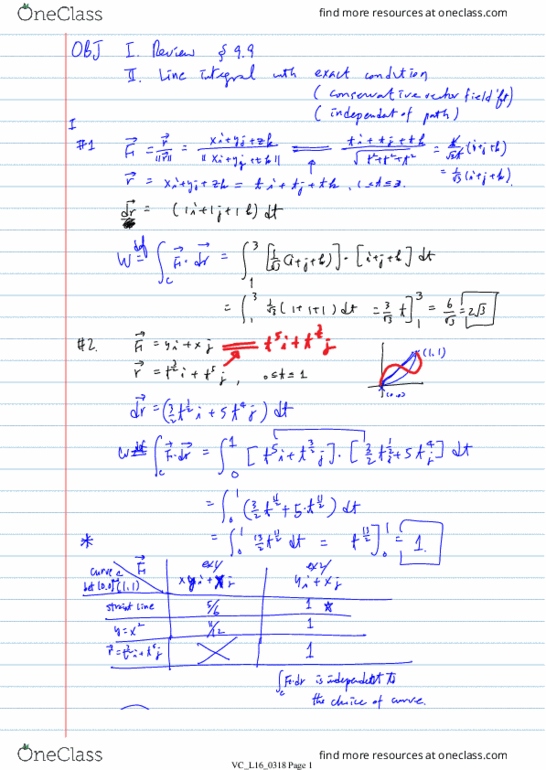 OneClass
find more resources at oneclass.com
OBJ I. Review § 9.9
II. Line integral with exact condition
(conservative vector field
(independent of path)
I
#1 F⃗ = r⃗/‖r⃗‖ = (xi+yj+zk)/‖xi+yj+zk‖ = (ti+tj+tk)/√(t²+t²+t²) = (i+j+k)
= 1/√3 (i+j+k)
r⃗ = xi+yj+zk = ti+tj+tk, 1≤t≤3
dr⃗ = (1i+1j+1k) dt
W def= ∫_C F⃗·dr⃗ = ∫_1^3 [1/√3 (i+j+k)]·[i+j+k] dt
= ∫_1^3 1/√3 (1+1+1) dt = 3/√3 t]_1^3 = 6/√3 = 2√3
#2. F⃗ = yi+xj = t⁵i+t^{3/2}j
r⃗ = t^{3/2}i+t⁵j, 0≤t≤1
(1,1)
(0,0)
dr⃗ = (3/2 t^{1/2} i + 5t⁴j) dt
W def= ∫_C F⃗·dr⃗ = ∫_0^1 [t⁵i+t^{3/2}j]·[3/2 t^{1/2} i+5t⁴j] dt
= ∫_0^1 (3/2 t^{11/2} + 5·t^{11/2}) dt
* = ∫_0^1 13/2 t^{11/2} dt = t^{13/2}]_0^1 = 1.
curve C F⃗
bet (0,0) & (1,1)
ex/ xyi+ j
ex/ yi+xj
straight line 5/6 1 *
y=x² 1
r⃗=t^{3/2}i+t⁵j 1
∫_C F⃗·dr is independent to
the choice of curve.
OneClass
VC_L16_0318 Page 1
find more resources at oneclass.com